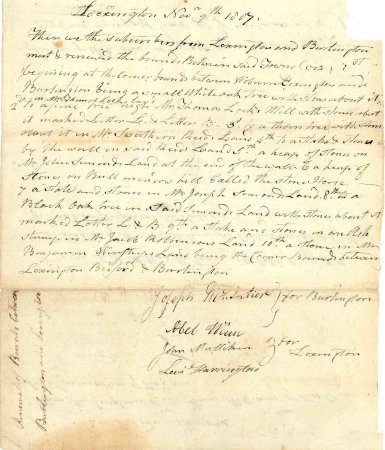 Lexington Novr. 9th 1807.
Then we the subscribers from Lexington and Burlington
met & renewed the bounds Between said Towns (viz) 1st
beginning at the Corner bound between Woburn Lexington and
Burlington being a small White oak tree with stones about it
in Mr. Samel
2d a maple tree Nigh Mr. Thomas Locks Mill with stones about
it marked Letter L & Letter B 3d a thorn tree with stones
about it in Mr. Reeds Land 4th to a stake & stones
by the wall in said Reeds Land 5th a heap of stones on
Mr. John Simonds Land at the end of the wall 6 a heap of
stones on Bull meadow hill Called the Stone horse
7 a Stake and Stones in Mr. Joseph Simonds Land 8th a
Black Oak tree in said Simonds Land with stones about it
marked Letter L & B 9th a Stake and Stones in an Ash
stump in Mr. Jacob Robinsons Land 10th a Stone in Mr.
Benjamin Winships Land being the Corner Bounds between
Lexington Bedford & Burlington
Joseph McIntier } for Burlington
Abel Winn
John Mulliken } for
Levi Harrington Lexington
Burlington and Lexington